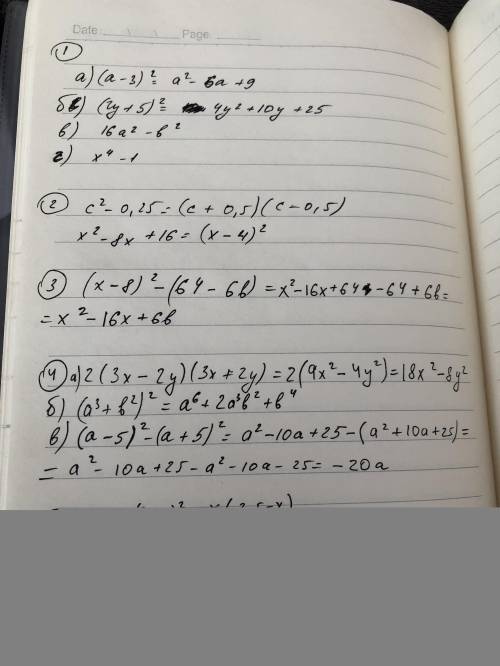 Date: Page
1
а) (a-3)² = a² - 6a + 9
б) (2y+5)² = 4y² + 10y + 25
в) 16a² - b²
г) x⁴ - 1
2 c² - 0,25 = (c + 0,5)(c - 0,5)
x² - 8x + 16 = (x - 4)²
3 (x-8)² - (64 - 6b) = x² - 16x + 64 - 64 + 6b =
= x² - 16x + 6b
4 а) 2(3x - 2y)(3x + 2y) = 2(9x² - 4y²) = 18x² - 8y²
б) (a³ + b²)² = a⁶ + 2a³b² + b⁴
в) (a - 5)² - (a + 5)² = a² - 10a + 25 - (a² + 10a + 25) =
= a² - 10a + 25 - a² - 10a - 25 = -20a